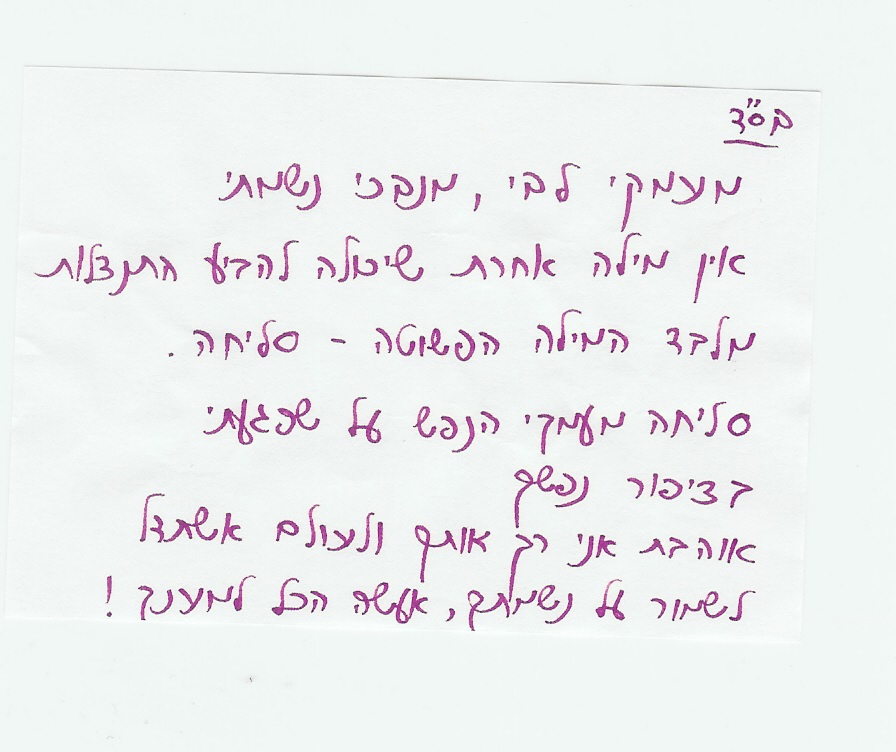 בס"ד
מעמקי לבי, מנבכי נשמתי
אין מילה אחרת שיכולה להביע התנצלות
מלבד המילה הפשוטה - סליחה.
סליחה מעמקי הנפש על שפגעתי
בציפור נפשך
אוהבת אני רק אותך ולעולם אשתדל
לשמור על נשמתך, אעשה הכל למענך!